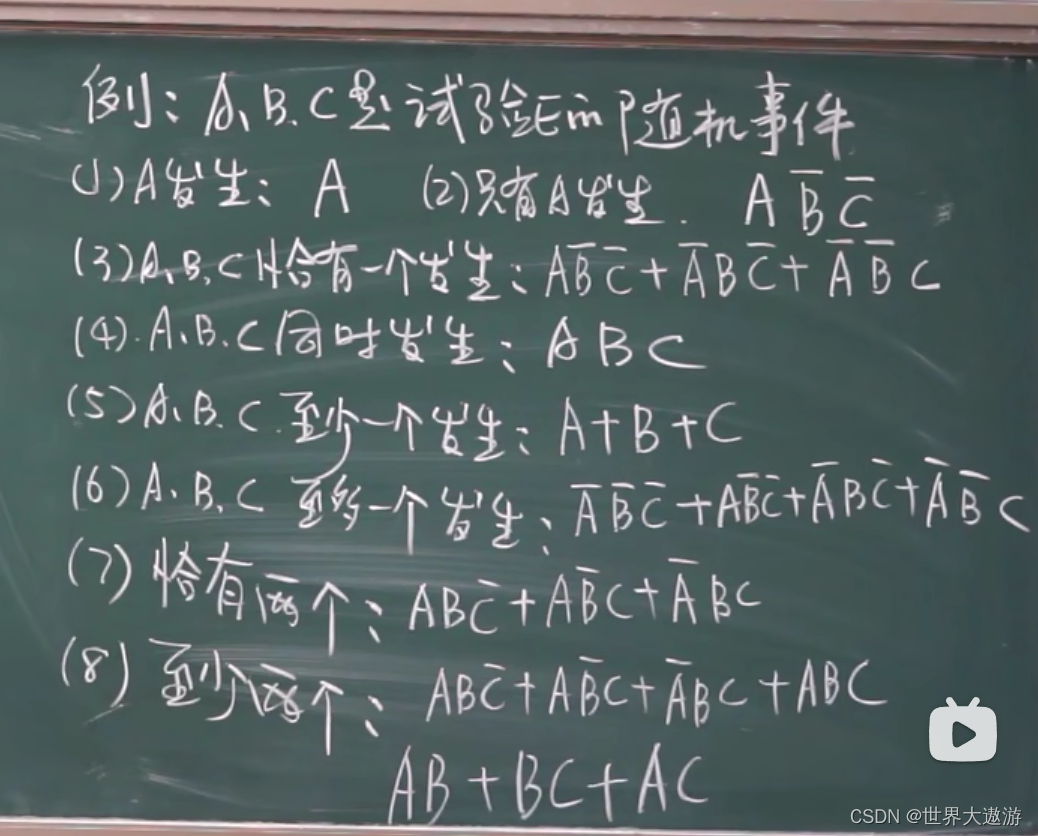 例：A、B、C是试验E的随机事件
(1)A发生：A (2)只有A发生. AB̅C̅
(3)A、B、C恰有一个发生：AB̅C̅+A̅BC̅+A̅B̅C
(4).A、B、C同时发生：ABC
(5)A、B、C.至少一个发生：A+B+C
(6)A、B、C至多一个发生：A̅B̅C̅+AB̅C̅+A̅BC̅+A̅B̅C
(7)恰有两个：ABC̅+AB̅C+A̅BC
(8)至少两个：ABC̅+AB̅C+A̅BC+ABC
AB+BC+AC
CSDN @世界大遨游